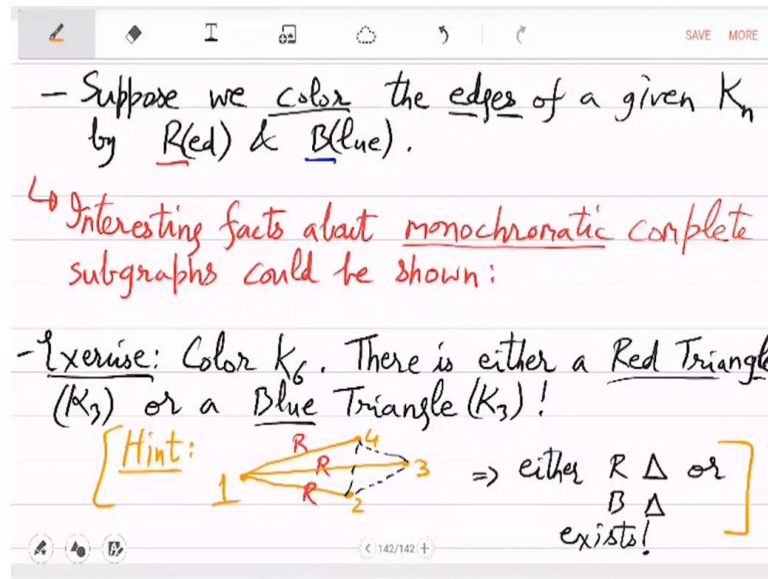 SAVE MORE
- Suppose we color the edges of a given Kn
by R(ed) & B(lue).
↳ Interesting facts about monochromatic complete
subgraphs could be shown:
- Exercise: Color K6. There is either a Red Triangle
(K3) or a Blue Triangle (K3)!
[Hint: 1 R 4 R 3 R 2 ⇒ either R Δ or
B Δ
exists!]
142/142